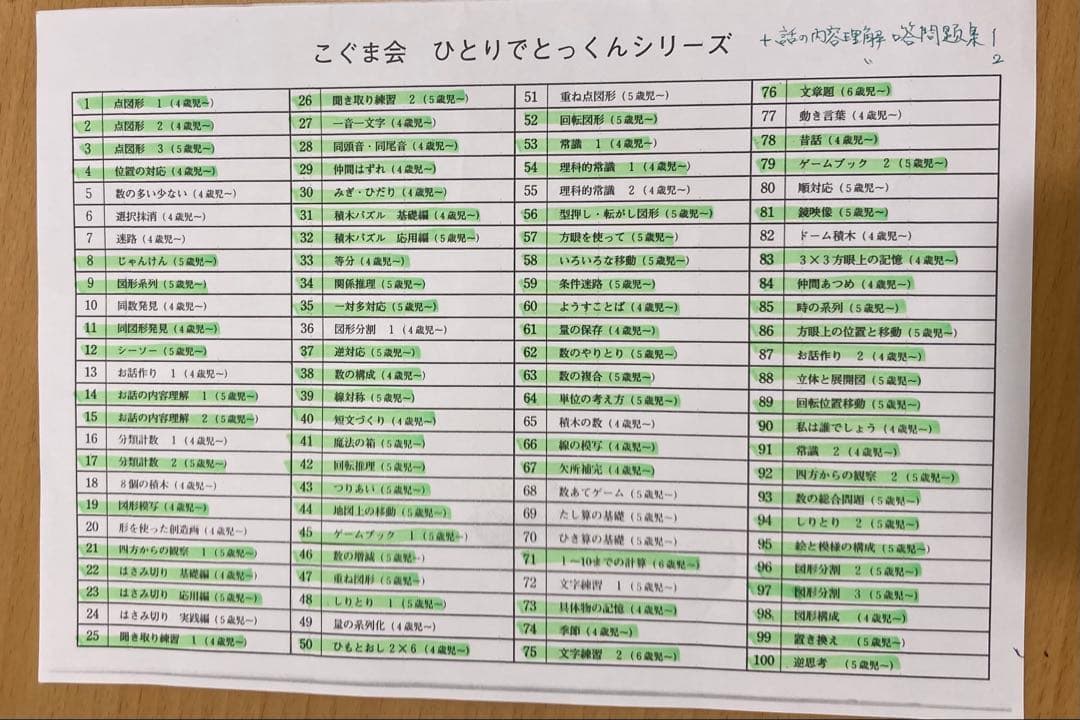 こぐま会 ひとりでとっくんシリーズ
+話の内容理解 答問題集 1
〃 2
1 点図形 1(4歳児~)
2 点図形 2(4歳児~)
3 点図形 3(5歳児~)
4 位置の対応(4歳児~)
5 数の多い少ない(4歳児~)
6 選択抹消(4歳児~)
7 迷路(4歳児~)
8 じゃんけん(5歳児~)
9 図形系列(5歳児~)
10 同数発見(4歳児~)
11 同図形発見(4歳児~)
12 シーソー(5歳児~)
13 お話作り 1(4歳児~)
14 お話の内容理解 1(5歳児~)
15 お話の内容理解 2(5歳児~)
16 分類計数 1(4歳児~)
17 分類計数 2(5歳児~)
18 8個の積木(4歳児~)
19 図形模写(4歳児~)
20 形を使った創造画(4歳児~)
21 四方からの観察 1(5歳児~)
22 はさみ切り 基礎編(4歳児~)
23 はさみ切り 応用編(5歳児~)
24 はさみ切り 実践編(5歳児~)
25 聞き取り練習 1(4歳児~)
26 聞き取り練習 2(5歳児~)
27 一音一文字(4歳児~)
28 同頭音・同尾音(4歳児~)
29 仲間はずれ(4歳児~)
30 みぎ・ひだり(4歳児~)
31 積木パズル 基礎編(4歳児~)
32 積木パズル 応用編(5歳児~)
33 等分(4歳児~)
34 関係推理(5歳児~)
35 一対多対応(5歳児~)
36 図形分割 1(4歳児~)
37 逆対応(5歳児~)
38 数の構成(4歳児~)
39 線対称(5歳児~)
40 短文づくり(4歳児~)
41 魔法の箱(5歳児~)
42 回転推理(5歳児~)
43 つりあい(5歳児~)
44 地図上の移動(5歳児~)
45 ゲームブック 1(5歳児~)
46 数の増減(5歳児~)
47 重ね図形(5歳児~)
48 しりとり 1(5歳児~)
49 量の系列化(4歳児~)
50 ひもとおし2×6(4歳児~)
51 重ね点図形(5歳児~)
52 回転図形(5歳児~)
53 常識 1(4歳児~)
54 理科的常識 1(4歳児~)
55 理科的常識 2(4歳児~)
56 型押し・転がし図形(5歳児~)
57 方眼を使って(5歳児~)
58 いろいろな移動(5歳児~)
59 条件迷路(5歳児~)
60 ようすことば(4歳児~)
61 量の保存(4歳児~)
62 数のやりとり(5歳児~)
63 数の複合(5歳児~)
64 単位の考え方(5歳児~)
65 積木の数(4歳児~)
66 線の模写(4歳児~)
67 欠所補完(4歳児~)
68 数あてゲーム(5歳児~)
69 たし算の基礎(5歳児~)
70 ひき算の基礎(5歳児~)
71 1~10までの計算(6歳児~)
72 文字練習 1(5歳児~)
73 具体物の記憶(4歳児~)
74 季節(4歳児~)
75 文字練習 2(6歳児~)
76 文章題(6歳児~)
77 動き言葉(4歳児~)
78 昔話(4歳児~)
79 ゲームブック 2(5歳児~)
80 順対応(5歳児~)
81 鏡映像(5歳児~)
82 ドーム積木(4歳児~)
83 3×3方眼上の記憶(4歳児~)
84 仲間あつめ(4歳児~)
85 時の系列(5歳児~)
86 方眼上の位置と移動(5歳児~)
87 お話作り 2(4歳児~)
88 立体と展開図(5歳児~)
89 回転位置移動(5歳児~)
90 私は誰でしょう(4歳児~)
91 常識 2(4歳児~)
92 四方からの観察 2(5歳児~)
93 数の総合問題(5歳児~)
94 しりとり 2(5歳児~)
95 絵と模様の構成(5歳児~)
96 図形分割 2(5歳児~)
97 図形分割 3(5歳児~)
98 図形構成(4歳児~)
99 置き換え(5歳児~)
100 逆思考(5歳児~)